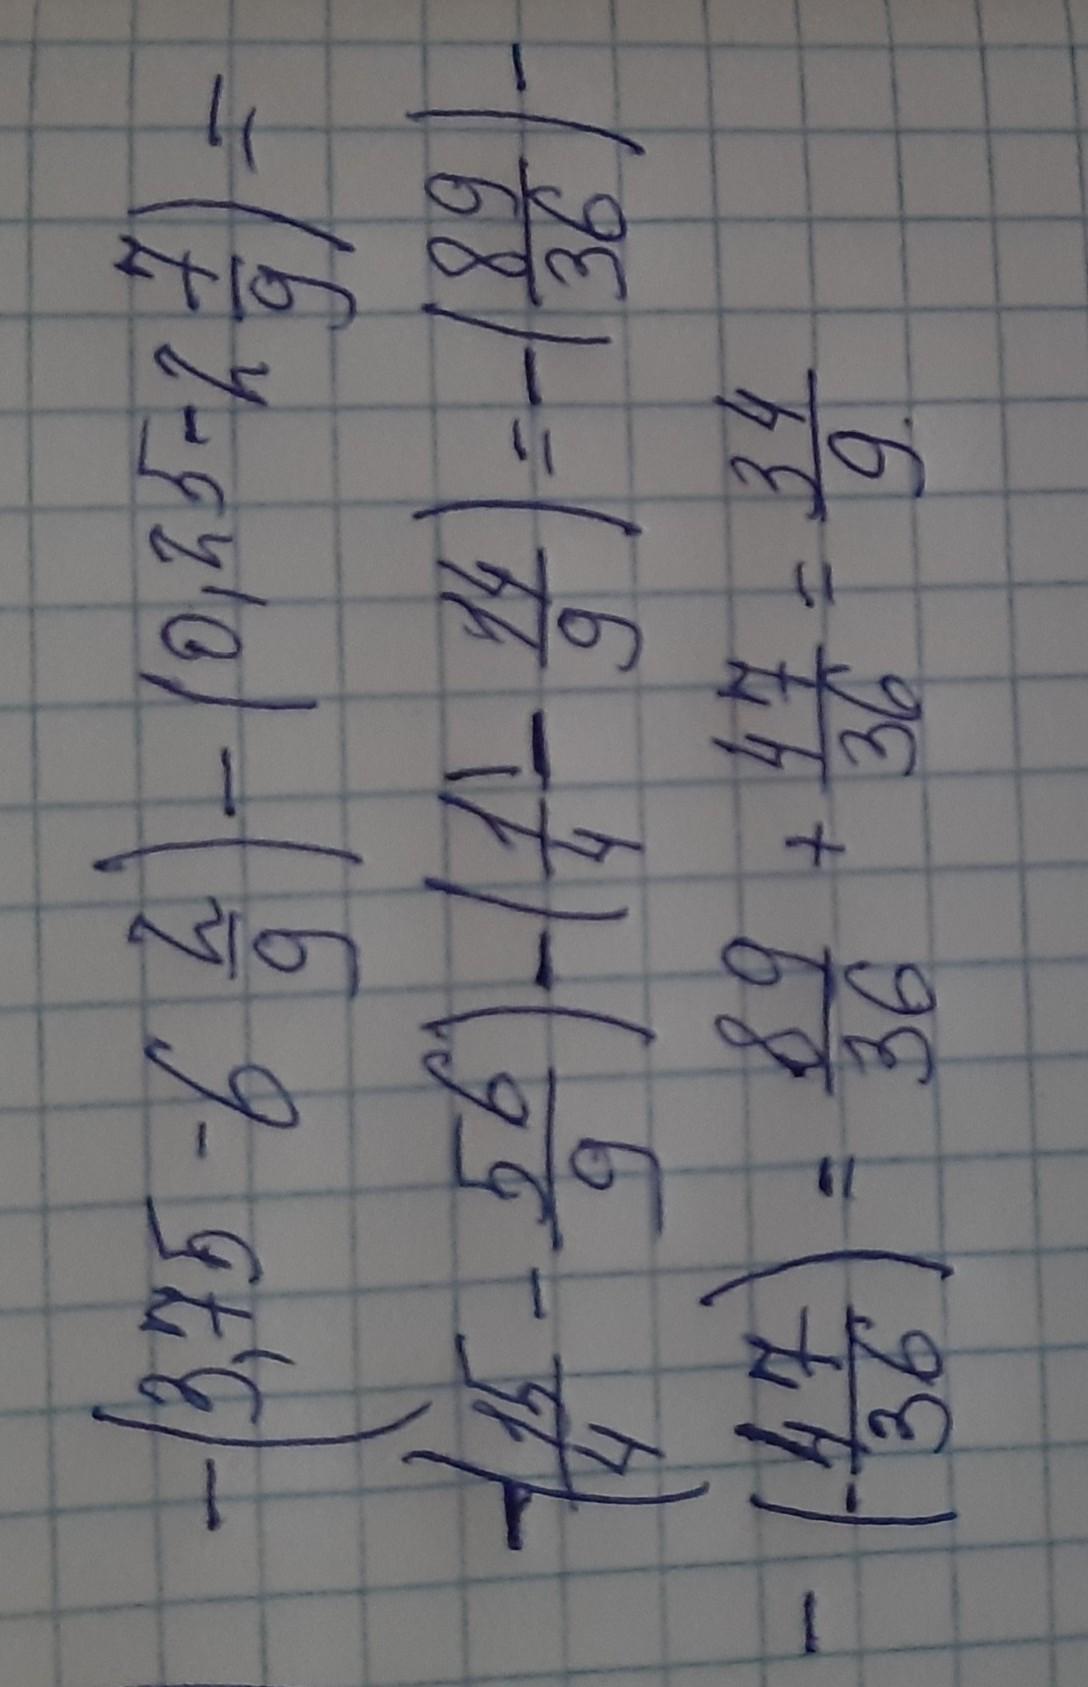 -(3,75 - 6 2/9) - (0,25 - 2 7/9) =
-(15/4 - 56/9) - (11/4 - 14/9) = -(89/36) -
-(-47/36) = 89/36 + 47/36 = 34/9